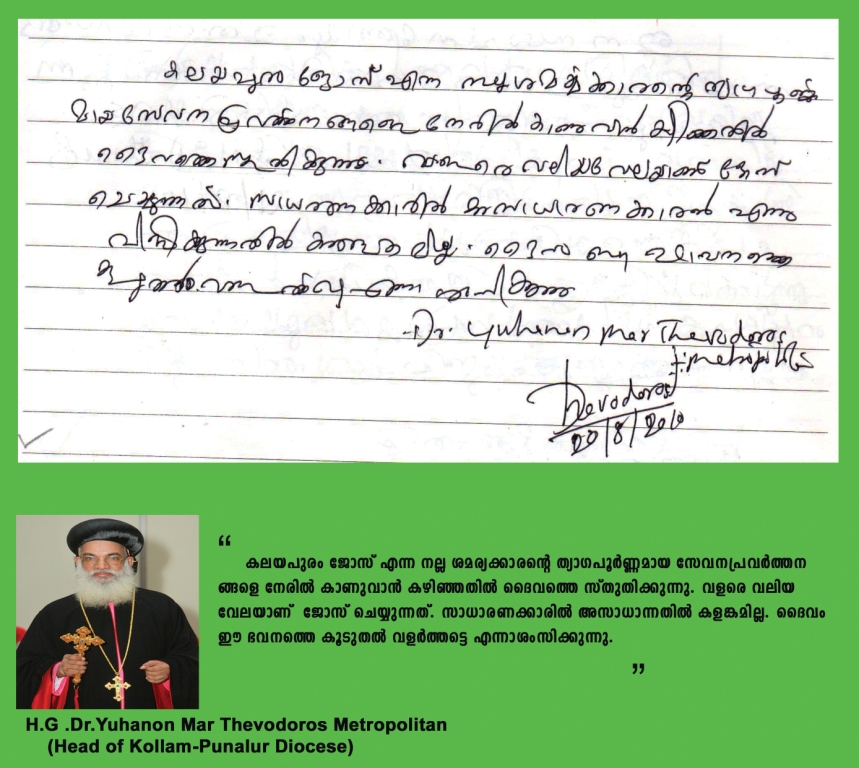 കലയപുരം ജോസ് എന്ന നല്ല ശമര്യക്കാരന്റെ ത്യാഗപൂർണ്ണ
മായ സേവന പ്രവർത്തനങ്ങളെ നേരിൽ കാണുവാൻ കഴിഞ്ഞതിൽ
ദൈവത്തെ സ്തുതിക്കുന്നു. വളരെ വലിയ വേലയാണ് ജോസ്
ചെയ്യുന്നത്. സാധാരണക്കാരിൽ അസാധാരണക്കാരൻ എന്നു
ദൈവം ഈ ഭവനത്തെ
കൂടുതൽ
-Dr. Yuhanon Mar Thevodoros
Metropolitan
Thevodoros
20/8/2010
“
കലയപുരം ജോസ് എന്ന നല്ല ശമര്യക്കാരന്റെ ത്യാഗപൂർണ്ണമായ സേവനപ്രവർത്തന
ങ്ങളെ നേരിൽ കാണുവാൻ കഴിഞ്ഞതിൽ ദൈവത്തെ സ്തുതിക്കുന്നു. വളരെ വലിയ
വേലയാണ് ജോസ് ചെയ്യുന്നത്. സാധാരണക്കാരിൽ അസാധാന്നതിൽ കളങ്കമില്ല. ദൈവം
ഈ ഭവനത്തെ കൂടുതൽ വളർത്തട്ടെ എന്നാശംസിക്കുന്നു.
”
H.G .Dr.Yuhanon Mar Thevodoros Metropolitan
(Head of Kollam-Punalur Diocese)